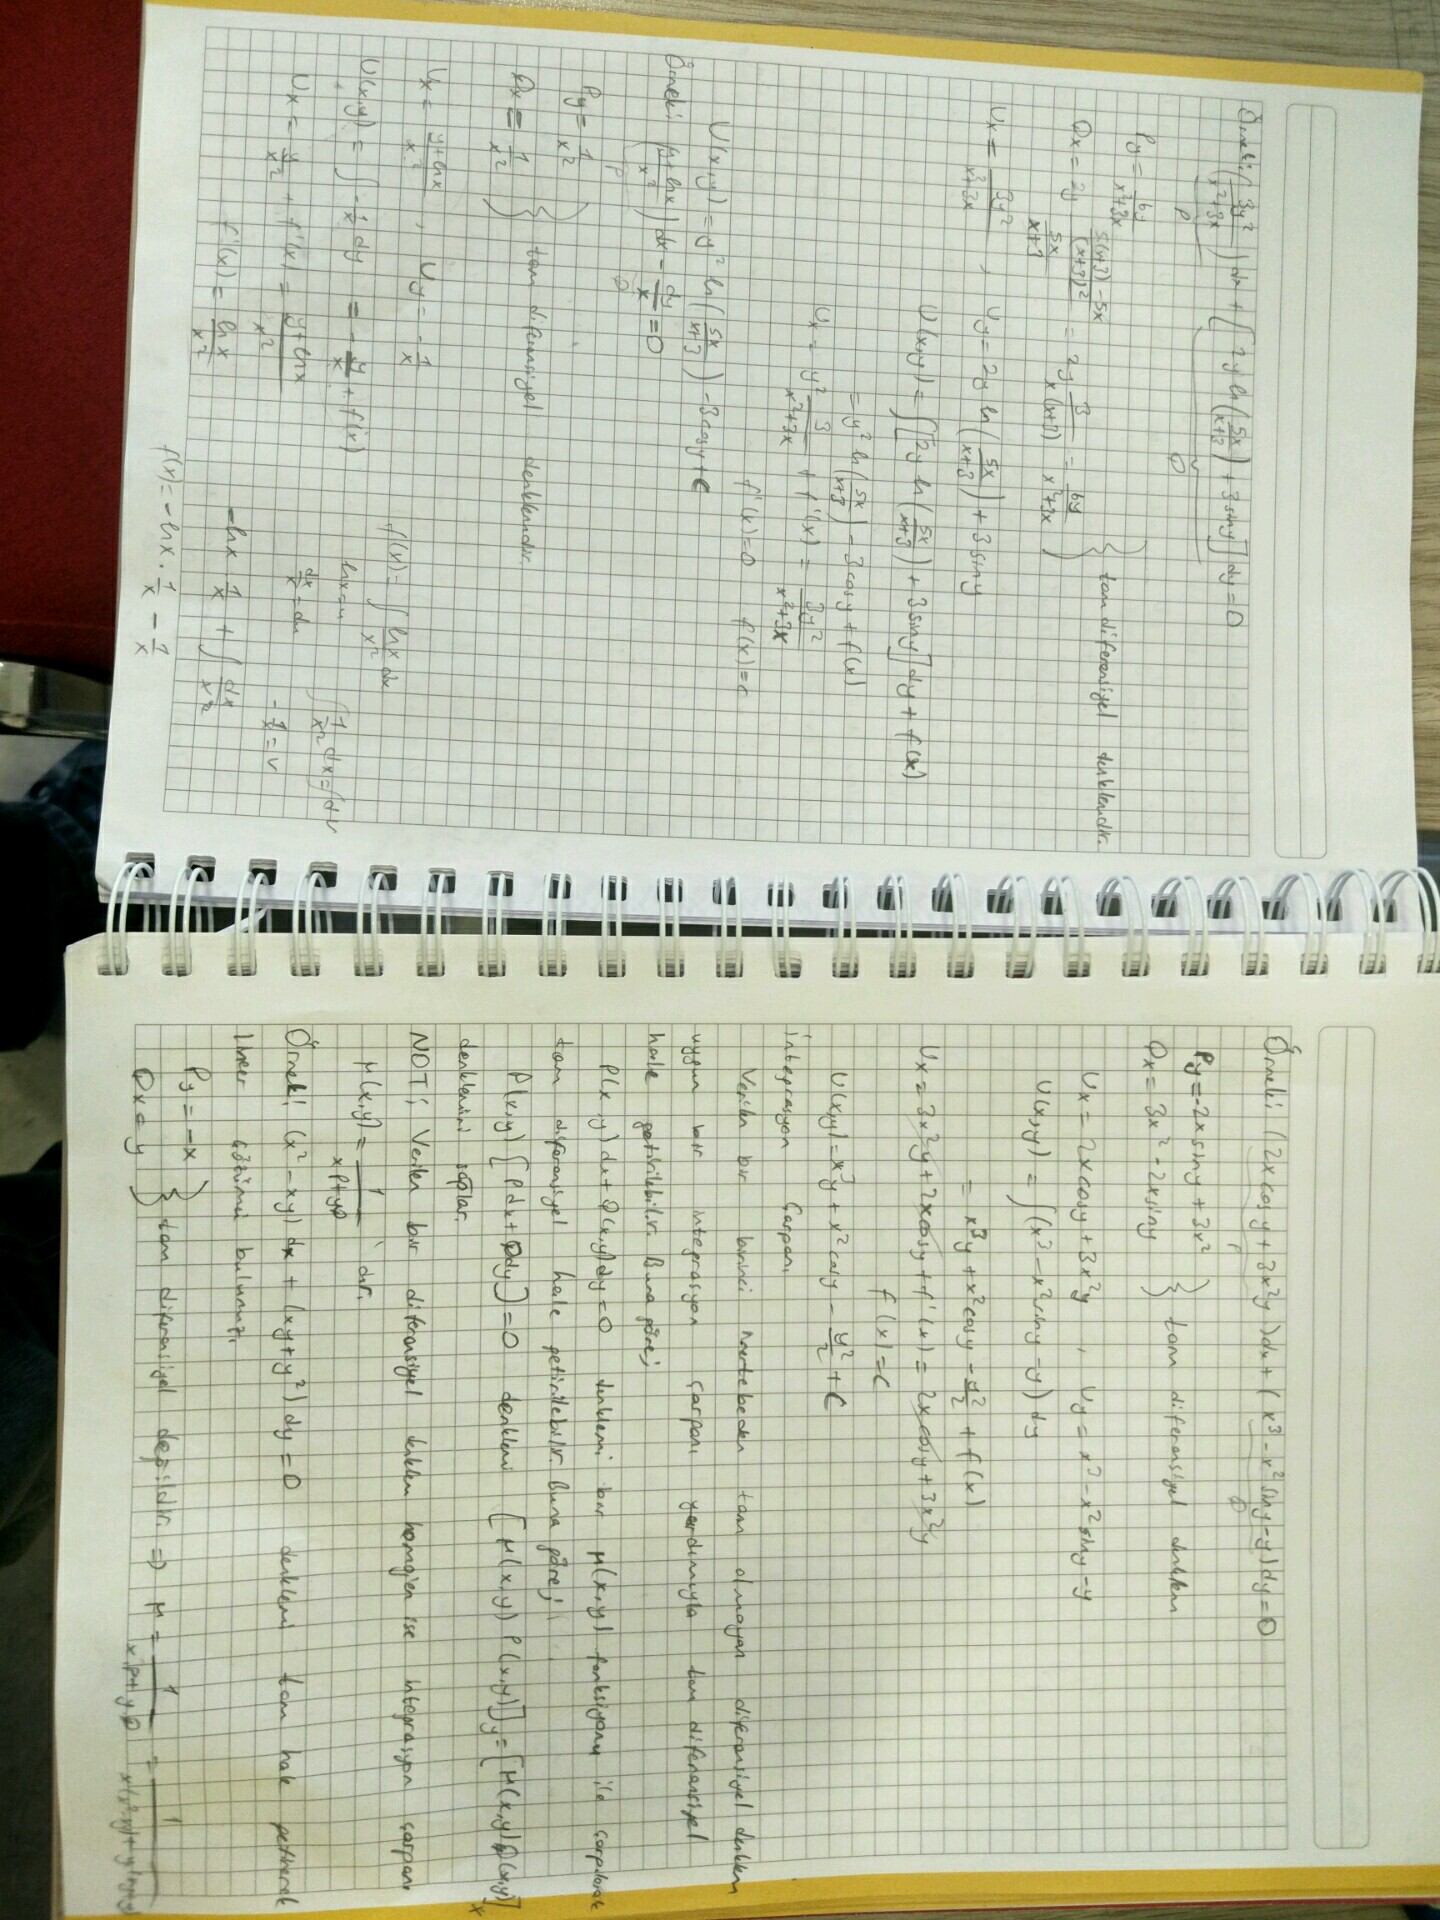 Örnek: (3y²/(x²+3x)) dx + [2y ln(5x/(x+3)) + 3siny] dy = 0
P Q
Py = 6y/(x²+3x)
Qx = 2y ((5(x+3) - 5x)/(x+3)²)/(5x/(x+3)) = 2y 3/(x(x+3)) = 6y/(x²+3x) } tam diferensiyel denklemdir.
Ux = 3y²/(x²+3x) , Uy = 2y ln(5x/(x+3)) + 3siny
U(x,y) = ∫[2y ln(5x/(x+3)) + 3siny] dy + f(x)
= y² ln(5x/(x+3)) - 3cosy + f(x)
Ux = y² 3/(x²+3x) + f'(x) = 3y²/(x²+3x)
f'(x)=0 f(x)=c
U(x,y) = y² ln(5x/(x+3)) - 3cosy + C
Örnek: ((y+lnx)/x²) dx - dy/x = 0
P Q
Py = 1/x²
Qx = 1/x² } tam diferensiyel denklemdir.
Ux = (y+lnx)/x² , Uy = -1/x
U(x,y) = ∫ -1/x dy = -y/x + f(x)
Ux = y/x² + f'(x) = (y+lnx)/x²
f'(x) = lnx/x²
f(x) = ∫ lnx/x² dx
lnx=u ∫ 1/x² dx = ∫dv
dx/x = du -1/x = v
-lnx 1/x + ∫ dx/x²
f(x) = -lnx . 1/x - 1/x
Örnek: (2x cosy + 3x²y) dx + (x³ - x² siny - y) dy = 0
P Q
Py = -2x siny + 3x²
Qx = 3x² - 2x siny } tam diferensiyel denklem
Ux = 2x cosy + 3x²y , Uy = x³ - x² siny - y
U(x,y) = ∫(x³ - x² siny - y) dy
= x³y + x² cosy - y²/2 + f(x)
Ux = 3x²y + 2x cosy + f'(x) = 2x cosy + 3x²y
f(x) = c
U(x,y) = x³y + x² cosy - y²/2 + C
İntegrasyon Çarpanı
Verilen bir birinci mertebeden tam olmayan diferensiyel denklem
uygun bir integrasyon çarpanı yardımıyla tam diferensiyel
hale getirilebilir. Buna göre;
P(x,y) dx + Q(x,y) dy = 0 denklemi bir μ(x,y) fonksiyonu ile çarpılarak
tam diferensiyel hale getirilebilir. Buna göre;
P(x,y) [Pdx + Qdy] = 0 denklemi [μ(x,y) P(x,y)]y = [μ(x,y) Q(x,y)]x
denklemini sağlar.
NOT: Verilen bir diferensiyel denklem homojen ise integrasyon çarpanı
μ(x,y) = 1/(xP+yQ) 'dir.
Örnek: (x² - xy) dx + (xy + y²) dy = 0 denklemi tam hale getirerek
lineer çözümü bulunuz.
Py = -x
Qx = y } tam diferensiyel değildir. ⇒ μ = 1/(x.P + y.Q) = 1/(x(x²-xy) + y(xy+y²))